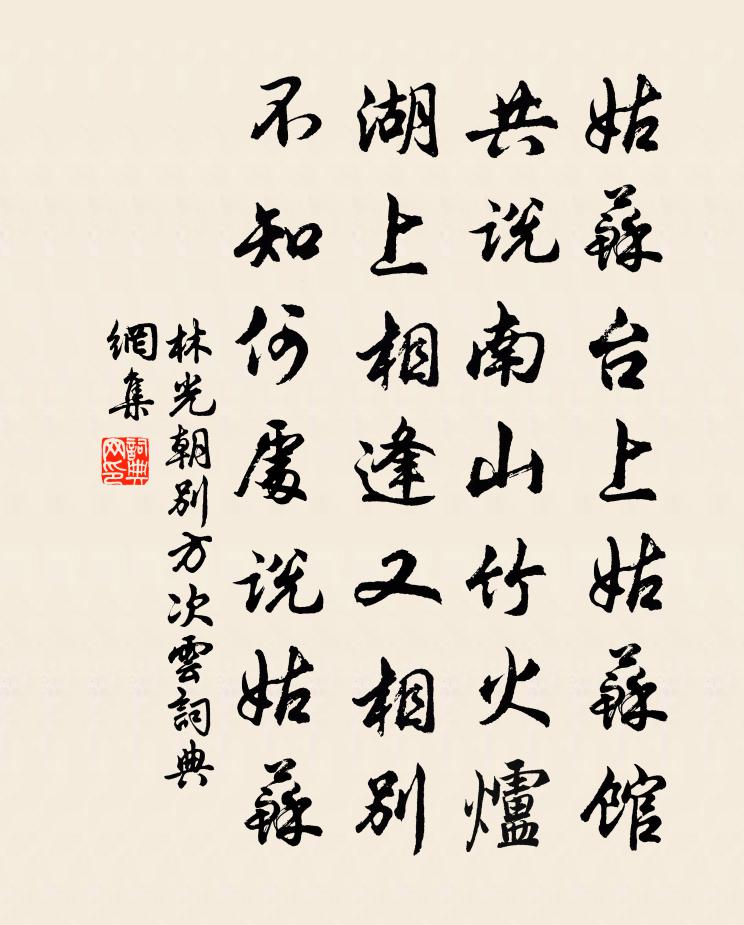 姑蘇台上姑蘇館
共説南山竹火爐
湖上相逢又相別
不知何處説姑蘇
林光朝別方次雲詞典
網集
詞典
网印